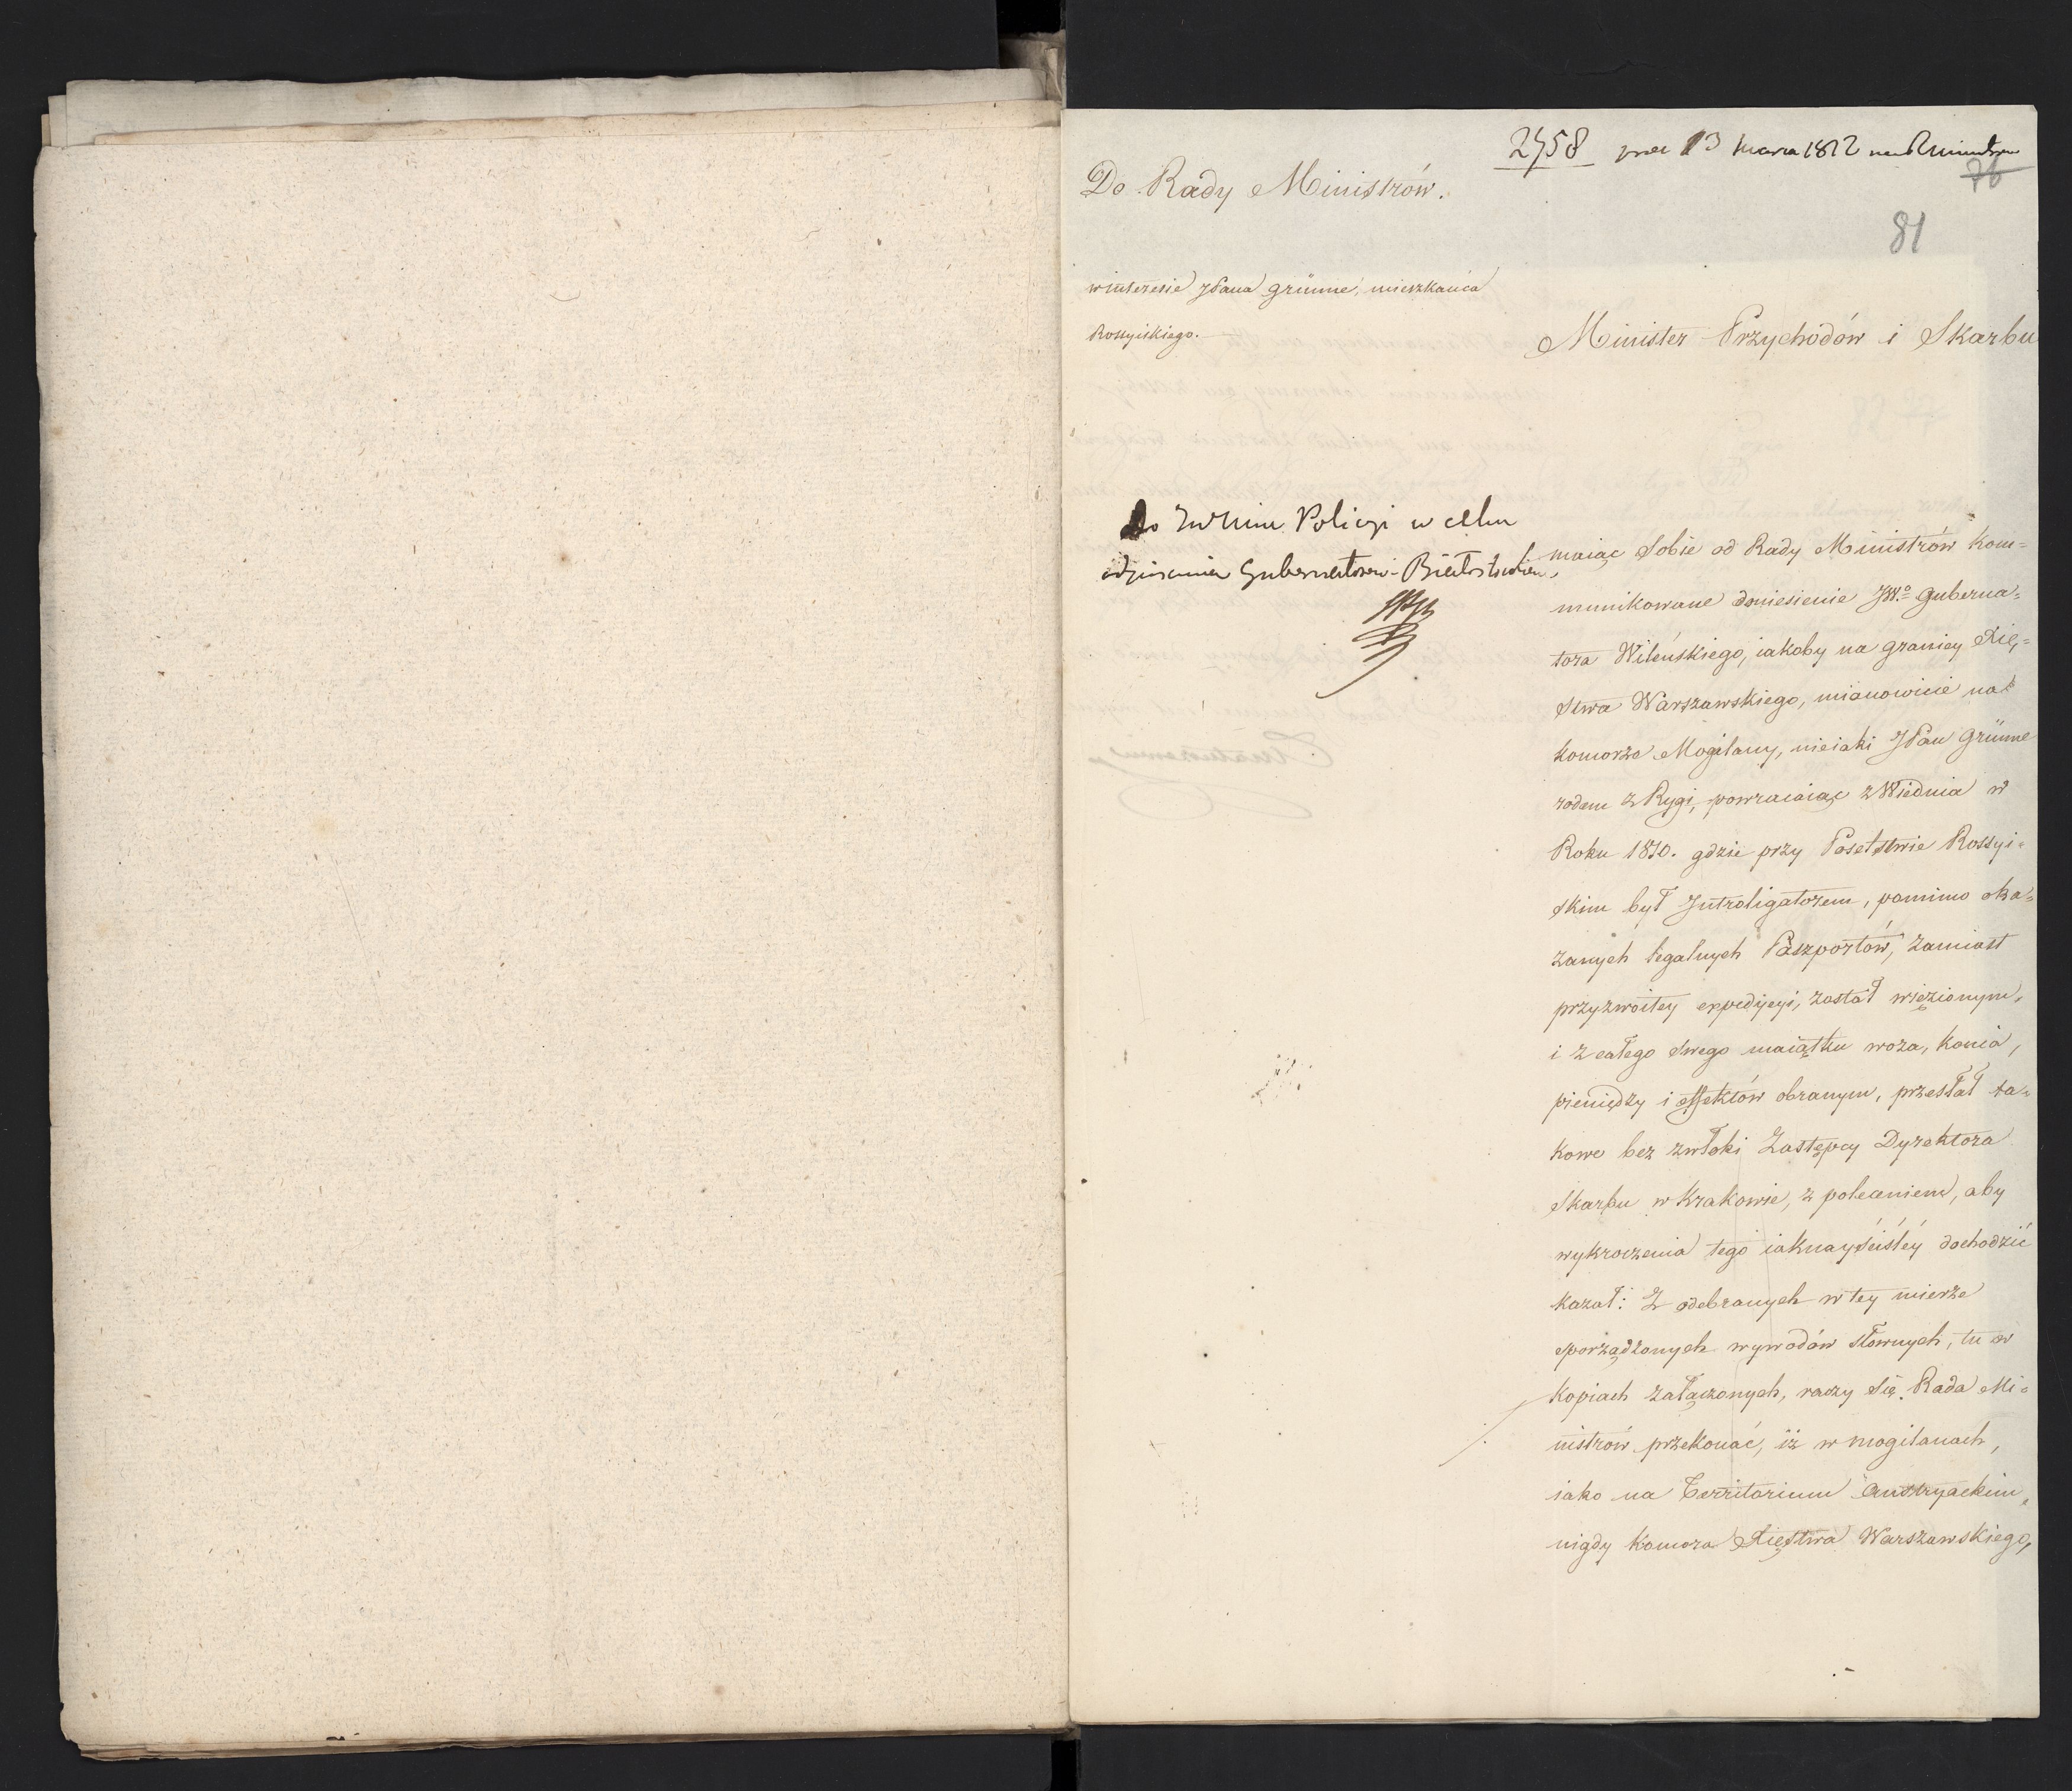 2758 13 marca 1812
76
Do Rady Ministrów.
81
w interesie JPana Grünne, mieszkańca
Rossyiskiego.
Minister Przychodów i Skarbu
do Policyi w celu
odpisania Gubernatorowi
maiąc Sobie od Rady Ministrów kom=
munikowane doniesienie JW.o Guberna=
tora Wileńskiego, iakoby na granicy Xię=
stwa Warszawskiego, mianowicie na
komorze Mogilany, nieiaki JPan Grünne
rodem z Rygi, powracaiąc z Wiednia w
Roku 1810. gdzie przy Poselstwie Rossyi=
skim był Jntroligatorem, pomimo oka=
zanych legalnych Paszportów, zamiast
przyzwoitey expedycyi, został więzionym,
i z całego swego maiątku woza, konia,
pieniędzy i effektów obranym, przesłał ta=
kowe bez zwłoki Zastępcy Dyrektora
Skarbu w Krakowie, z poleceniem, aby
wykroczenia tego iaknayściśléy dochodzić
kazał: Z odebranych w tey mierze
sporządzonych wywodów słownych, tu w
kopiach załączonych, raczy się Rada Mi=
nistrów przekonać, iż w Mogilanach,
iako na Territorium Austryackim,
nigdy komora Xięstwa Warszawskiego,